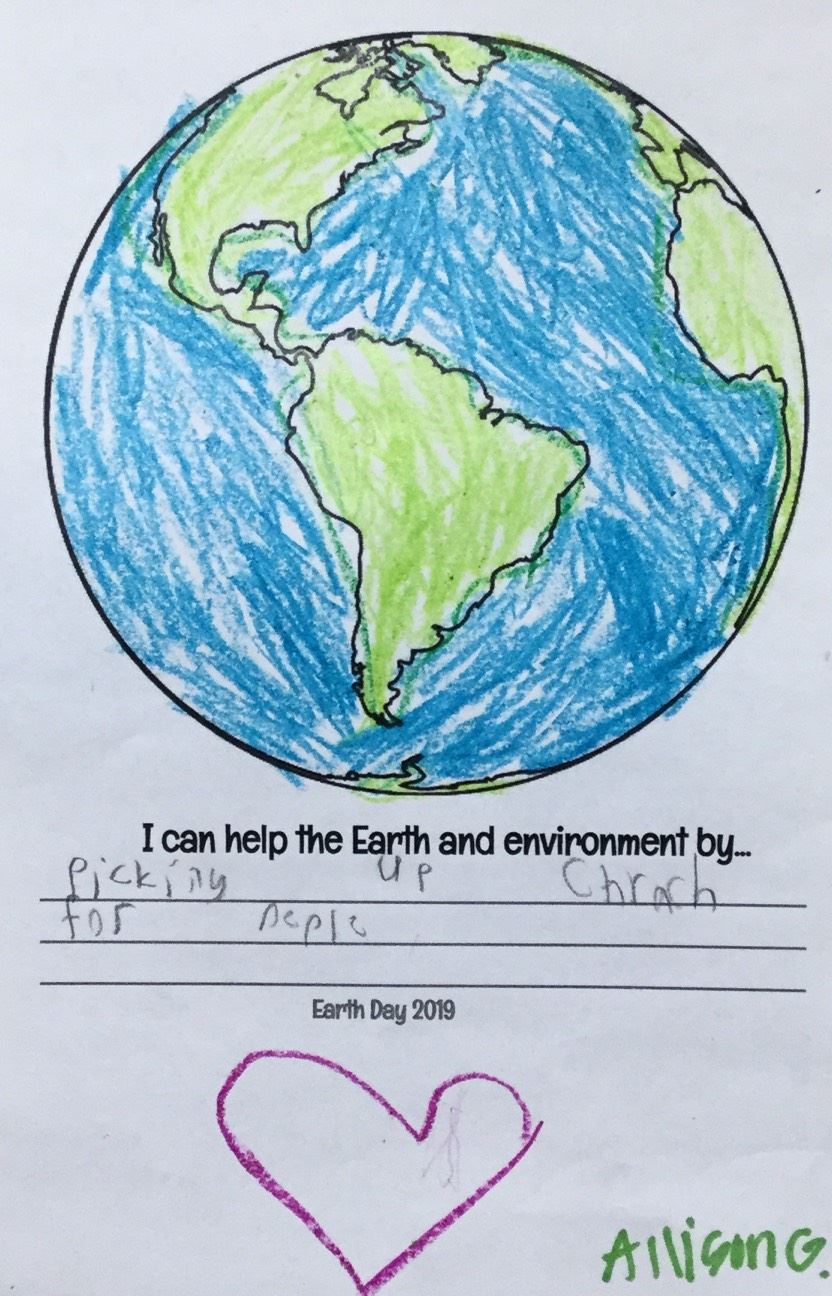 I can help the Earth and environment by...
Picking up Chrach
for peple
Earth Day 2019
Allison G.